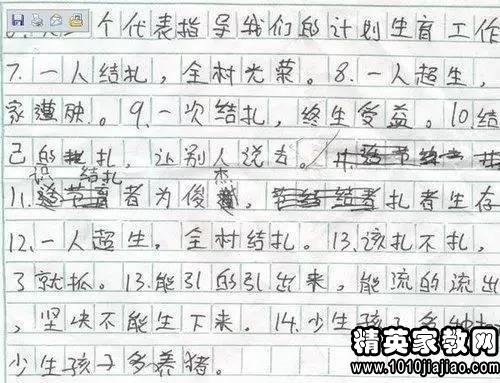 个代表指导我们的计划生育工作
7.一人结扎,全村光荣。8.一人超生,
家遭殃。9.一次结扎,终生受益。10.结
己的扎,让别人说去。
识 结扎 杰
11. 者为俊 , 扎者生存
12.一人超生,全村结扎。13.该扎不扎,
了就抓。13.能引的引出来,能流的流出
,坚决不能生下来。14.少生孩子多种
少生孩子多养猪。
精英家教网
www.1010jiajiao.com